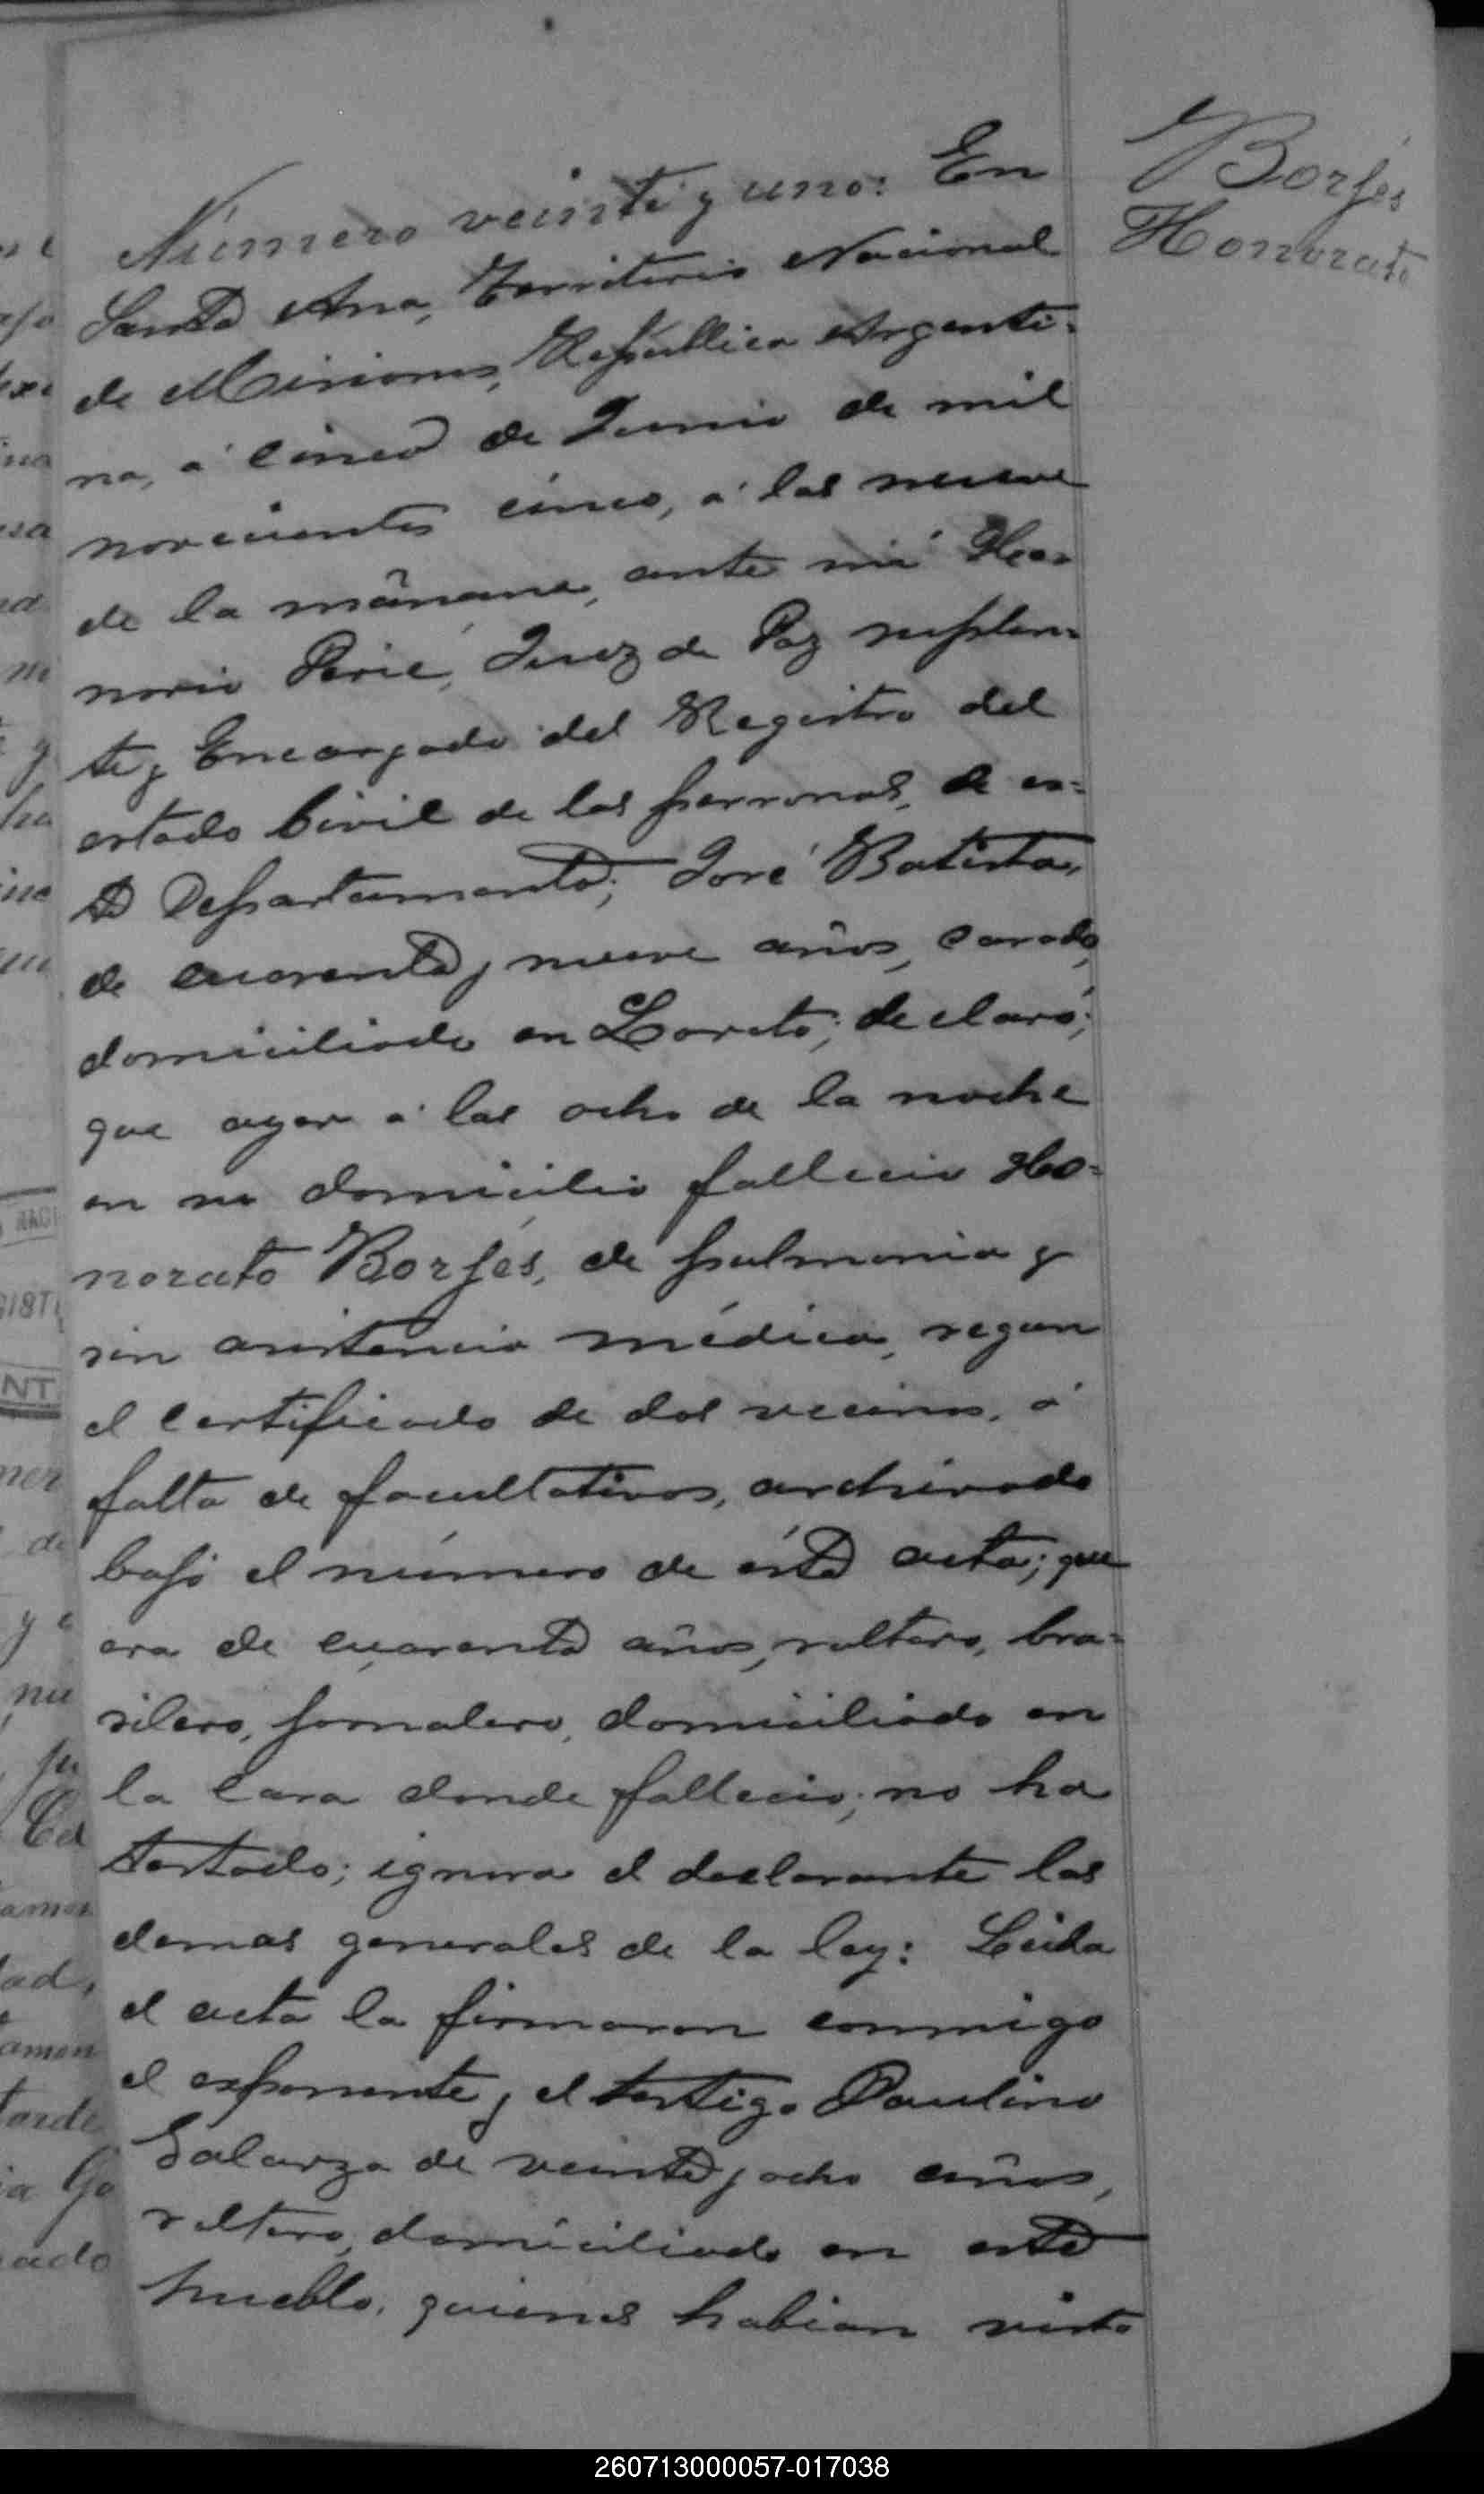 Borjes
Honorato
Número veinte y uno: En
Santa Ana, Territorio Nacional
de Misiones, República Argenti=
na, á cinco de Junio de mil
novecientos cinco, á las nueve
de la mañana, ante mi Ho=
norio Perié, Juez de Paz suplen=
te y Encargado del Registro del
estado Civil de las personas, de es=
te Departamento; José Batista,
de cuarenta y nueve años, casado,
domiciliado en Loreto; declaró;
que ayer á las ocho de la noche
en su domicilio fallecio Ho=
norato Borjes, de pulmonia y
sin asistencia médica, segun
el certificado de dos vecinos, á
falta de facultativos, archivado
bajo el número de ésta acta; que
era de cuarenta años, soltero, bra=
silero, jornalero, domiciliado en
la casa donde fallecio; no ha
testado; ignora el declarante las
demas generales de la ley: Leida
el acta la firmaron conmigo
el exponente y el testigo Paulino
Galarza de veinte y ocho años,
soltero, domiciliado en este
pueblo, quienes habian visto
260713000057-017038